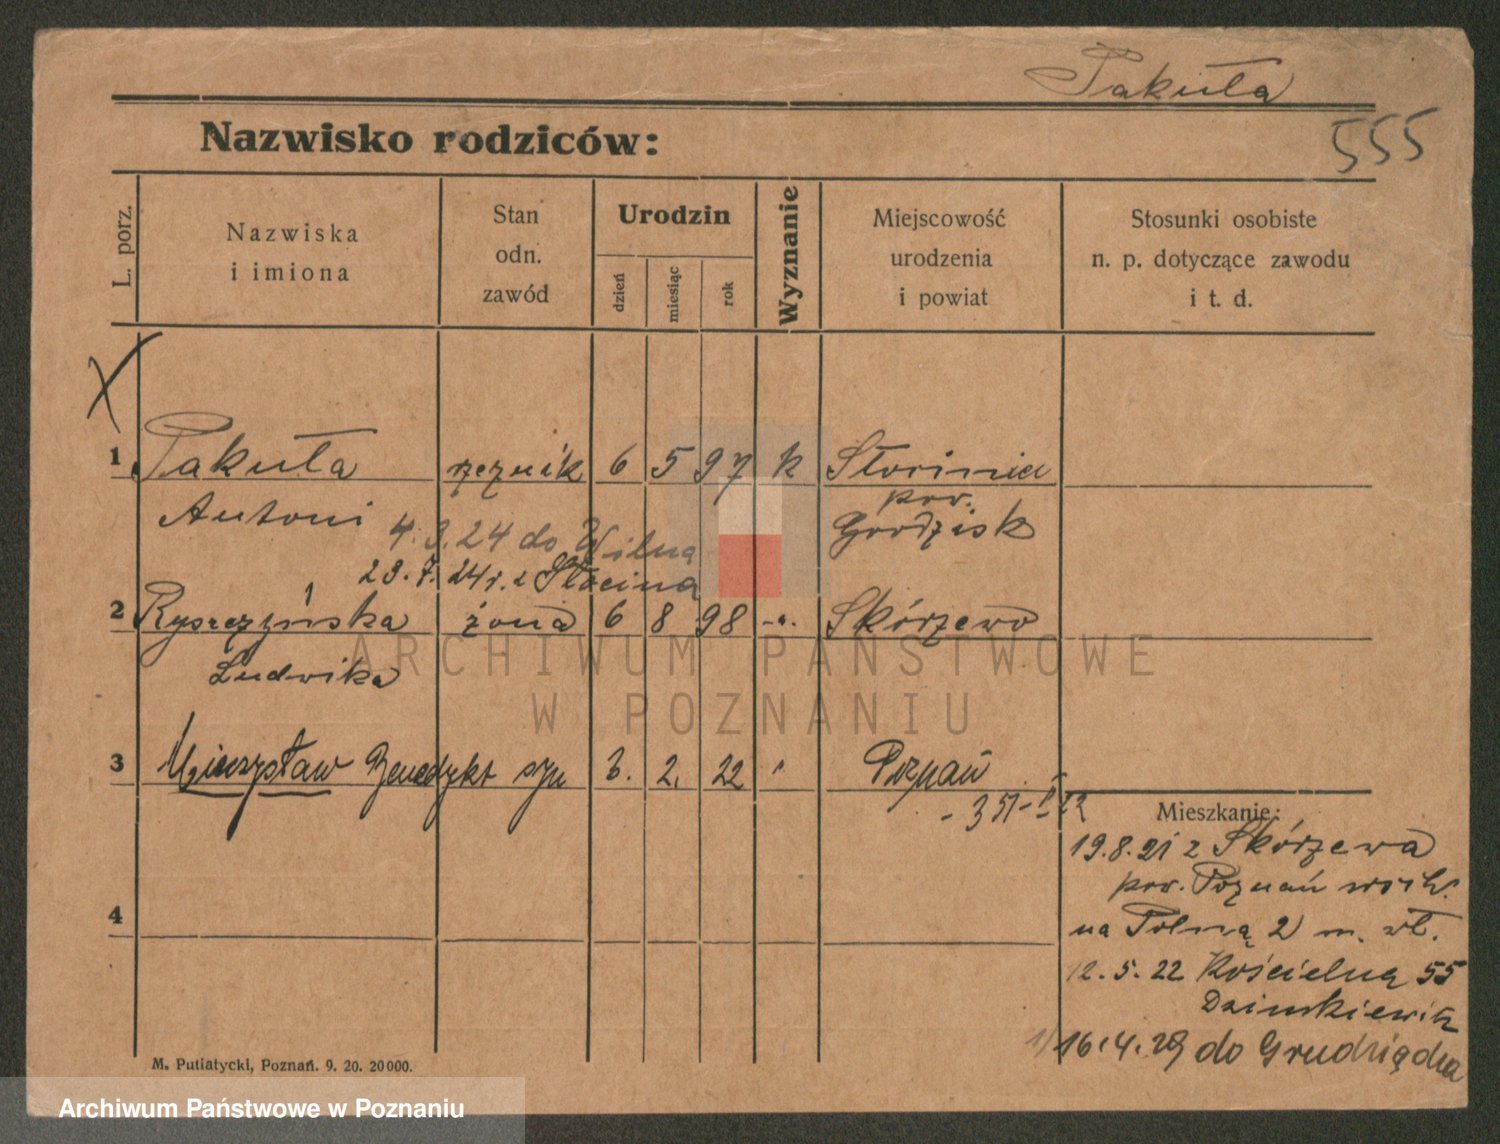 Pakuła
555
Nazwisko rodziców:
L. porz.
Nazwiska
i imiona
Stan
odn.
zawód
Urodzin
dzień
miesiąc
rok
Wyznanie
Miejscowość
urodzenia
i powiat
Stosunki osobiste
n. p. dotyczące zawodu
i t. d.
1 Pakuła rzeźnik 6 5 97 k
Antoni pow.
Grodzisk
4.3.24 do Wilna
23.7.24r. z
2 Ryszczyńska żona 6 8 98 Skórzewo
Ludwika
3 Mieczysław Benedykt syn 3. 2. 22 Poznań
Mieszkanie:
19.8.21 z Skórzewa
pow. Poznań
na Polną 2 m. wł.
12.5.22 Kościelną 55
16.4.29 do Grudziądza
4
M. Putiatycki, Poznań. 9. 20. 20000.
ARCHIWUM PAŃSTWOWE
W POZNANIU
Archiwum Państwowe w Poznaniu